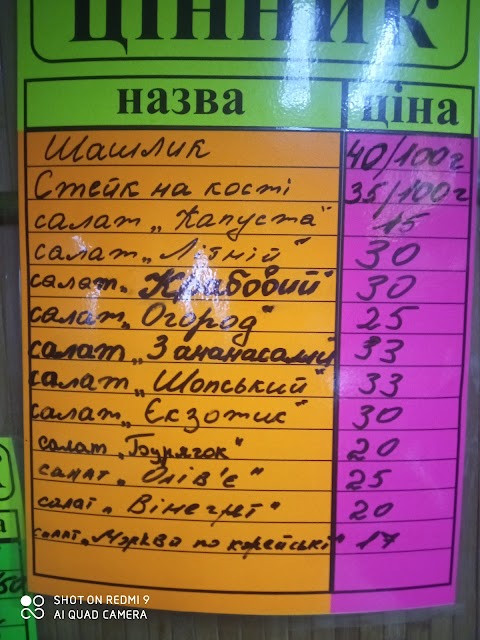 ЦІННИК
назва ціна
Шашлик 40/100г
Стейк на кості 35/100г
салат „Капуста“ 15
салат „Літній“ 30
салат „Крабовий“ 30
салат „Огород“ 25
салат „З ананасами 33
салат „Шопський“ 33
салат „Екзотик“ 30
салат „Бурячок“ 20
салат „Олів'є“ 25
салат „Вінегрет“ 20
салат „Морква по корейські“ 17
SHOT ON REDMI 9
AI QUAD CAMERA